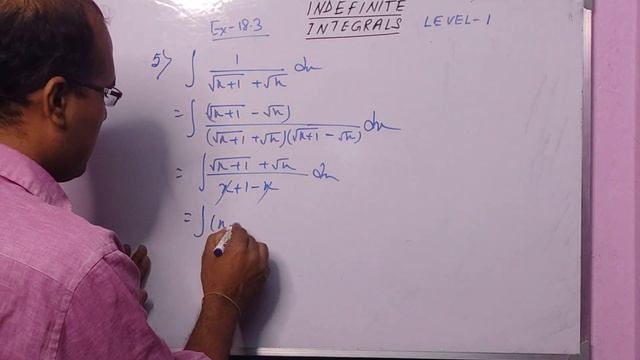 Ex-18.3 INDEFINITE INTEGRALS LEVEL-1
5) ∫ 1/(√x+1 + √x) dx
= ∫ (√x+1 - √x)/((√x+1 + √x)(√x+1 - √x)) dx
= ∫ (√x+1 + √x)/(x+1-x) dx
= ∫(x